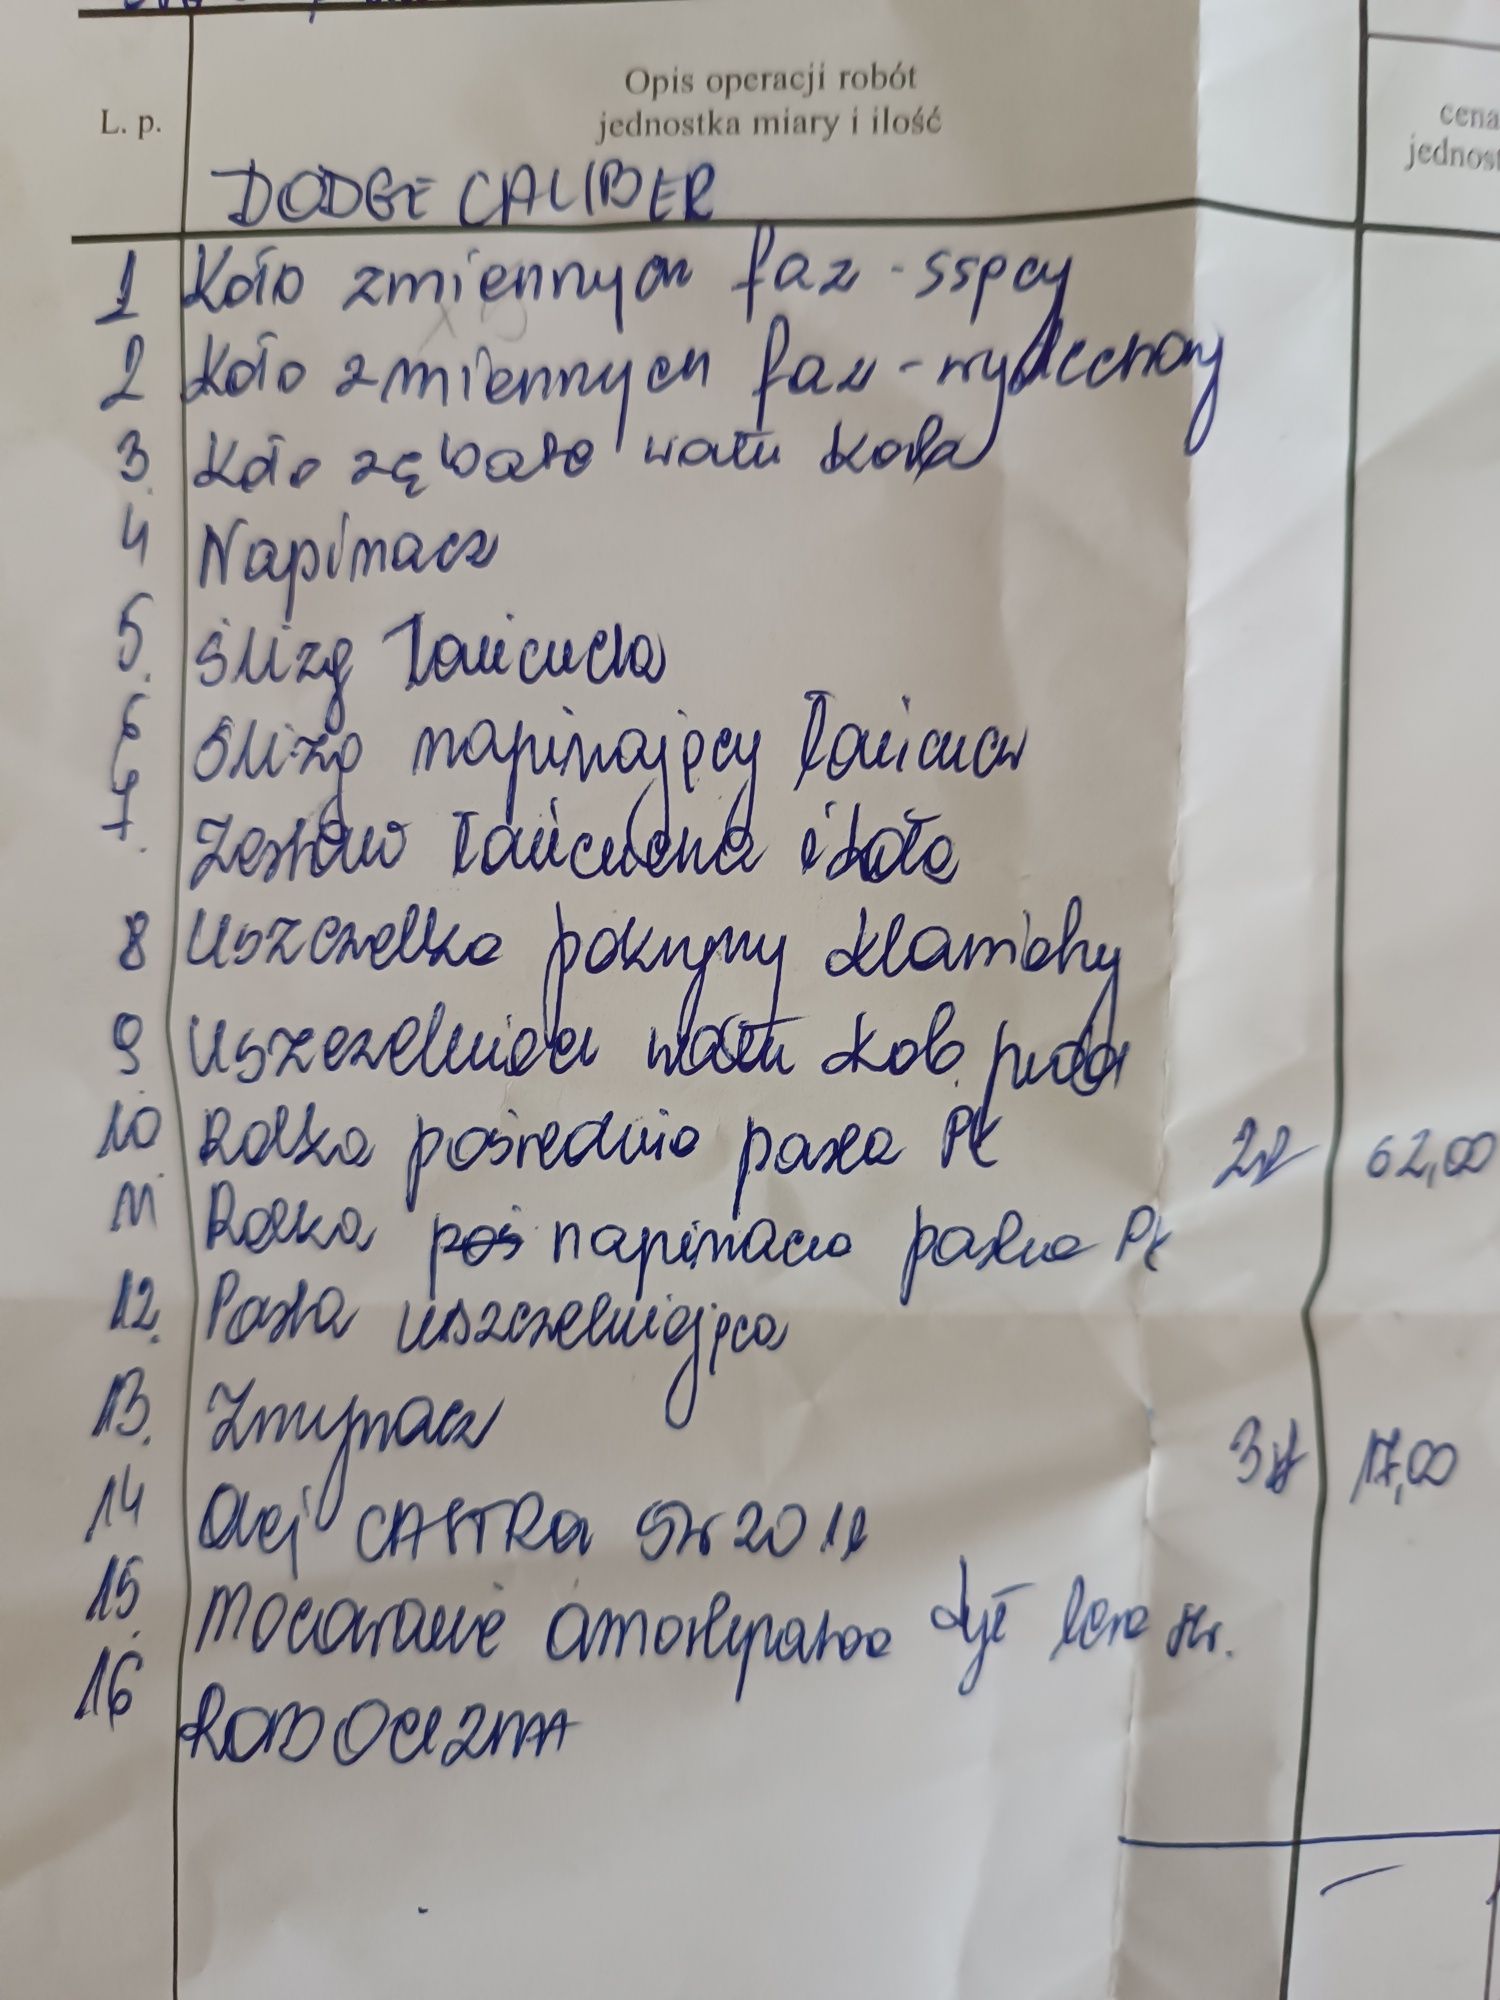 L. p.
Opis operacji robót
jednostka miary i ilość
cena
jednost
DODGE CALIBER
1 Koło zmiennych faz - sspcy
2 Koło zmiennych faz - wydechowy
3. Koło zębate wału korba
4 Napinacz
5. Ślizg łańcucha
6 Ślizg napinający łańcuch
7. Zestaw łańcucha i koło
8 Uszczelka pokrywy klawiatury
9. Uszczelniacz wału korb. przód
10 Rolka pośrednia paska PK 2x 62,00
11 Rolka poś napinacza paska PK
12. Pasta uszczelniająca
13. Zmywacz 3x 17,00
14 Olej CASTROL 5w20 1l
15. Mocowanie amortyzatora tył str.
16 ROBOCIZNA